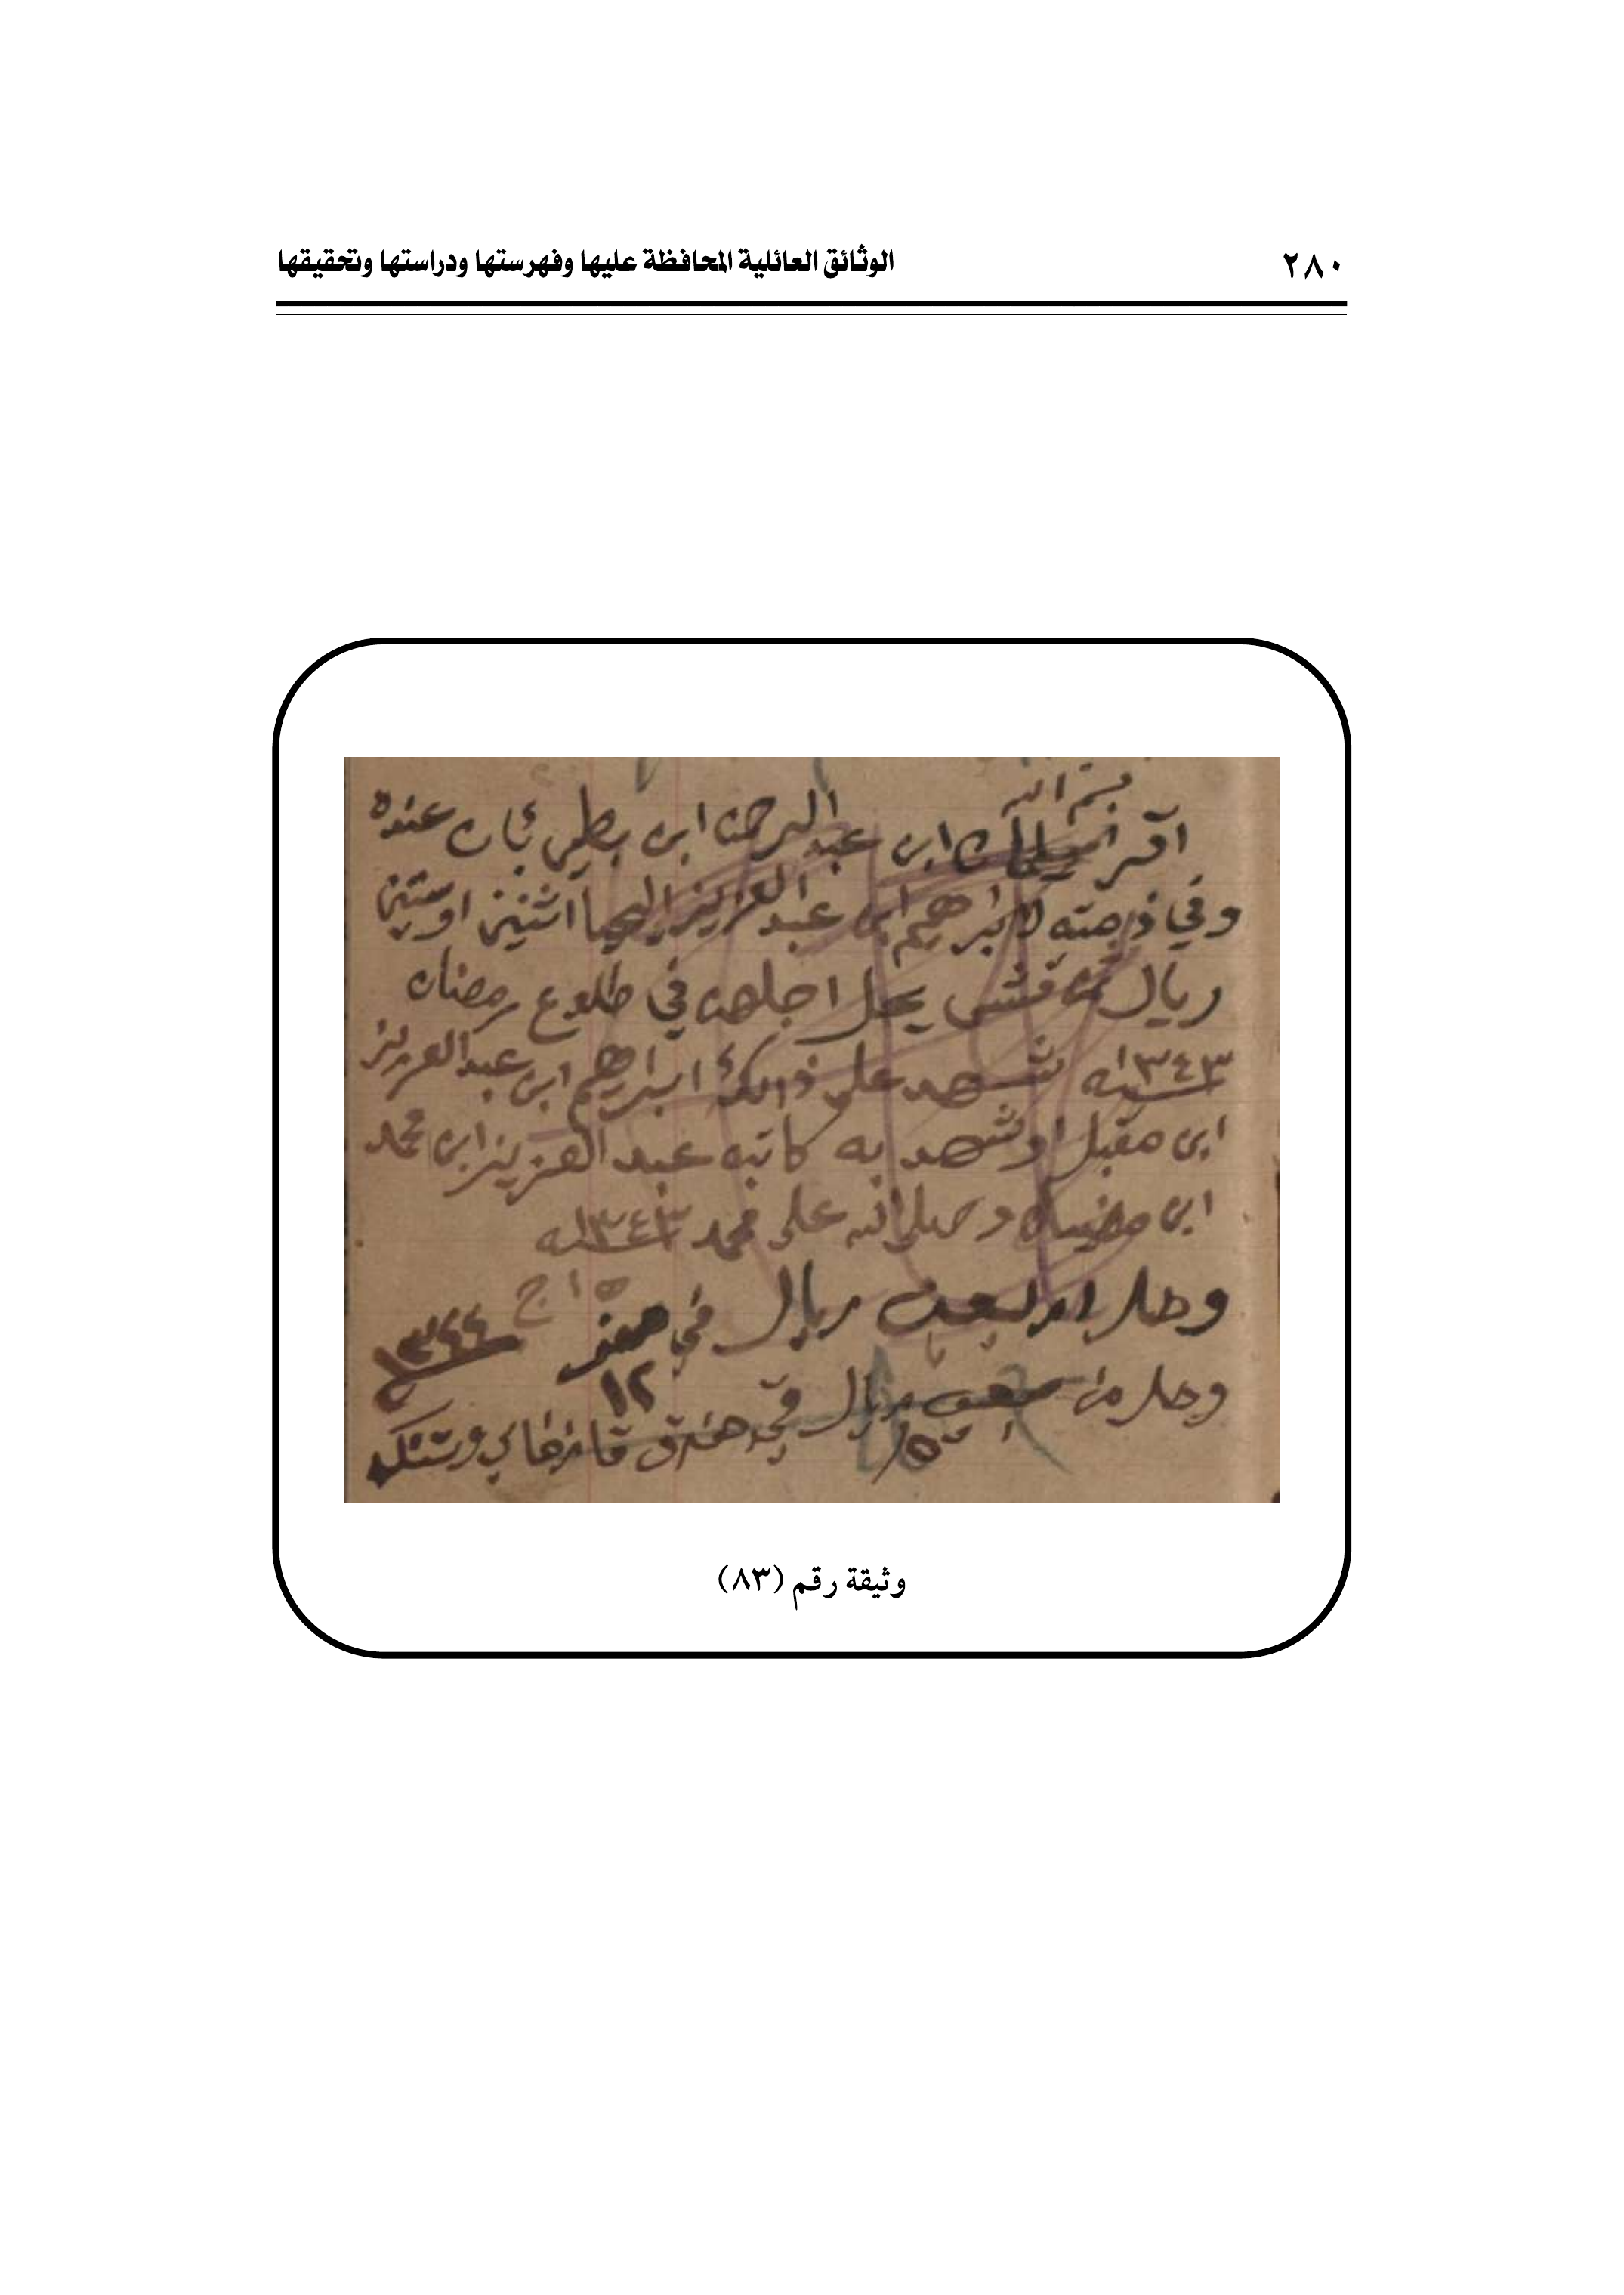 ٢٨٠ الوثائق العائلية المحافظة عليها وفهرستها ودراستها وتحقيقها
بسم الله
اقر سليمان ابن عبدالرحمن ابن بطي بأن عنده
وفي ذمته لابراهيم ابن عبدالعزيز اليحيا اثنين اوستين
ريال يحل اجلهن في طلوع رمضان
١٣٤٣ـه شهد على ذالك ابراهيم ابن عبدالعزيز
ابن مقبل اوشهد به كاتبه عبدالعزيز ابن محمد
ابن وصلى الله على محمد ١٣٤٣ـه
وصل اربعين ريال في صفر
١٣٤٤
وصل من ريال في
١٢
١٥
وثيقة رقم (٨٣)